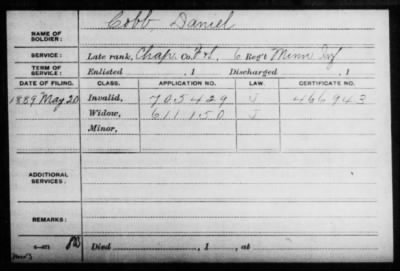 Cobb, Daniel
NAME OF
SOLDIER:
SERVICE: Late rank, Chap. Co. F & S, 6 Reg't Minn Inf
TERM OF
SERVICE: Enlisted , 1 Discharged , 1
DATE OF FILING. CLASS. APPLICATION NO. LAW. CERTIFICATE NO.
1889 May 20 Invalid, 705429 J 466943
Widow, 611150 J
Minor,
ADDITIONAL
SERVICES:
REMARKS:
Died , 1 , at